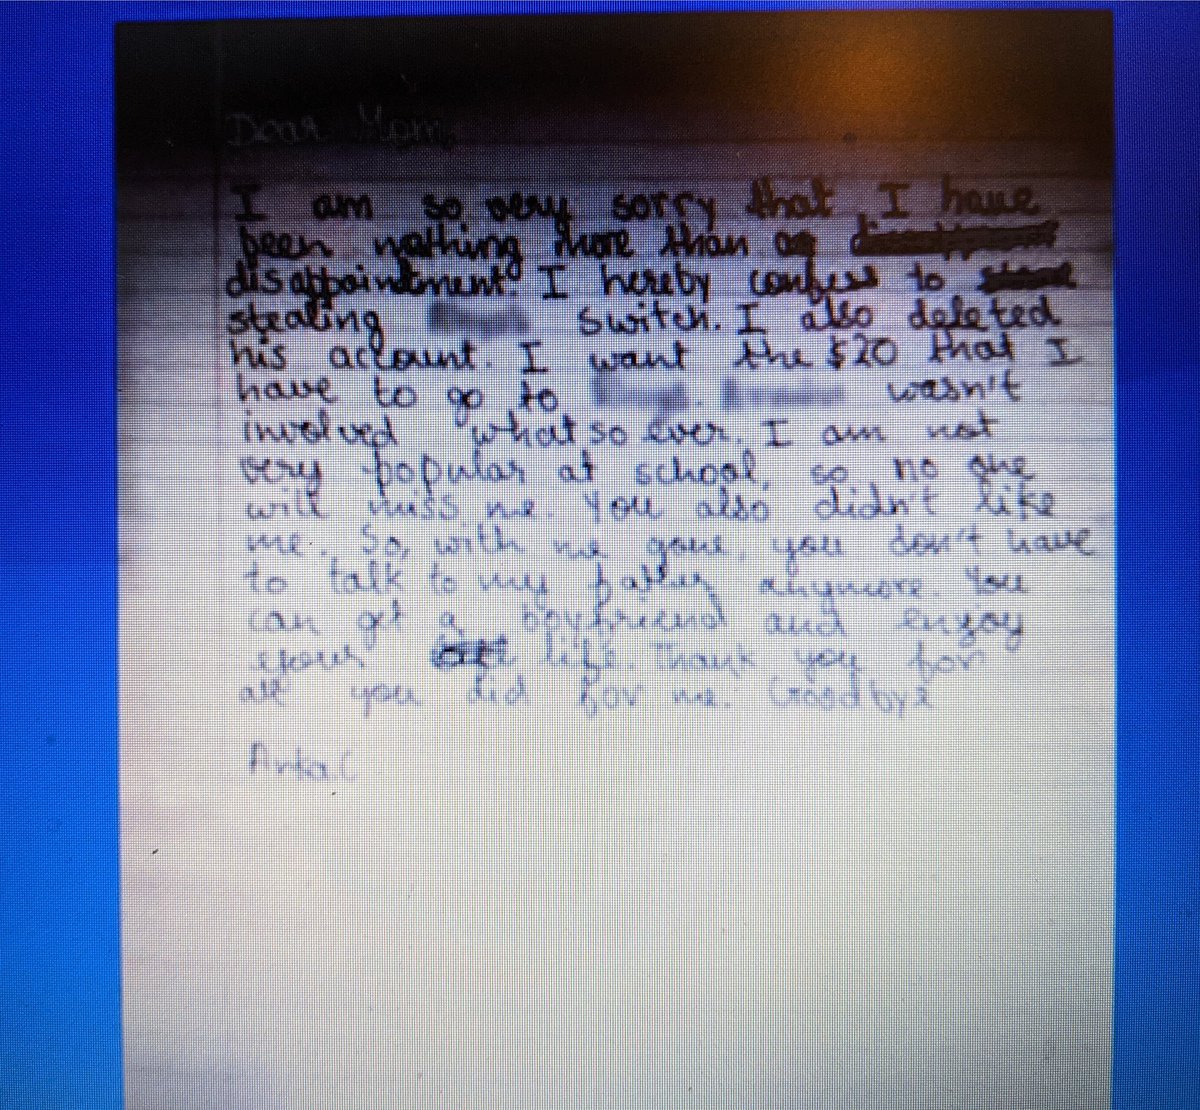 Dear Mom,
I am so very sorry that I have
been nothing more than a
disappointment. I hereby confess to
stealing Switch. I also deleted
his account. I want the $20 that I
have to go to . wasn't
involved what so ever. I am not
very popular at school, so no one
will miss me. You also didn't like
me. So, with me gone, you don't have
to talk to my father anymore. You
can get a boyfriend and enjoy
your life. Thank you for
all you did for me. Goodbye